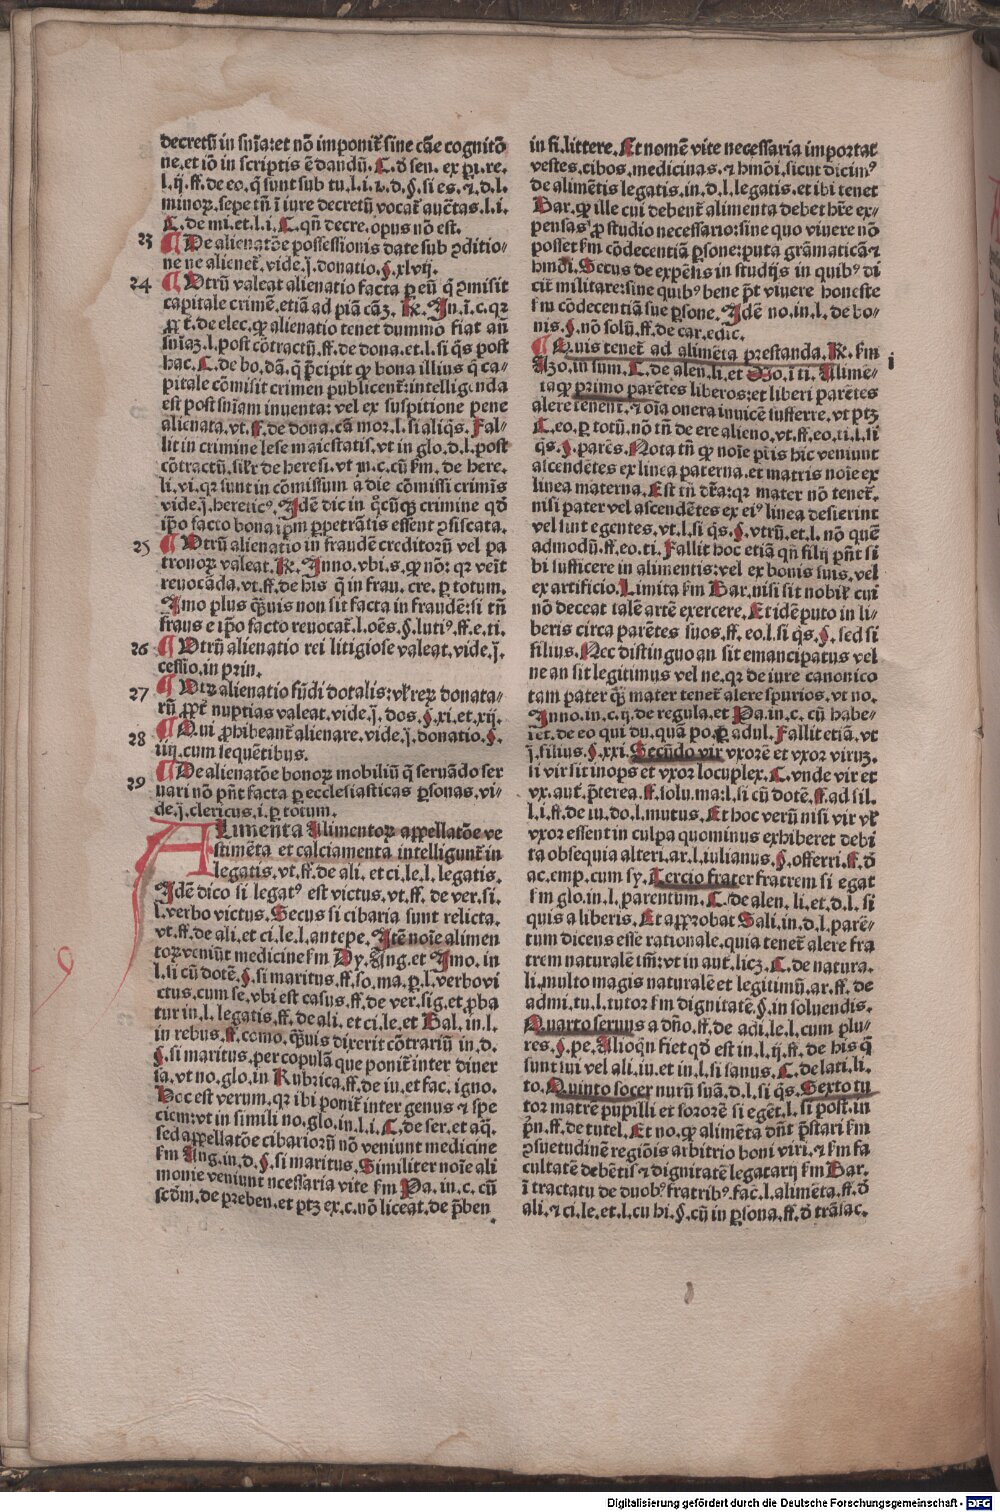 decretū in sn̄ia: et nō imponit̄ sine cāe cognitō
ne. et iō in scriptis ē dandū. C. d̓ sen. ex p̄i. re.
l. ij. ff. de eo. q̄ sunt sub tu. l. i. ⁊. d. §. si es. ⁊. d. l.
minoꝝ. sepe tn̄ ī iure decretū vocat̄ auc̄tas. l. i.
C. de mi. et. l. i. C. qn̄ decre. opus nō est.
23 ¶ De alienatōe possessionis date sub ꝯditio-
ne ne alienet̄. vide. j. donatio. §. xlvij.
24 ¶ Utrū valeat alienatio facta ꝑ eū q̄ ꝯmisit
capitale crimē. etiā ad piā cāꝫ. R̄. In. ī. c. qꝛ
ꝓpt̄. de elec. ꝙ alienatio tenet dummō fiat an
sn̄iaꝫ. l. post cōtractū. ff. de dona. et. l. si q̄s post
hac. C. de bo. dā. q̄ p̄cipit ꝙ bona illius q̄ ca-
pitale cōmisit crimen publicent̄: intelligenda
est post sn̄iam inuenta: vel ex suspitione pene
alienata. vt. ff. de dona. cā mor. l. si aliq̄s. Fal-
lit in crimine lese maiestatis. vt in glo. d. l. post
cōtractū. silr̄ de heresi. vt in. c. cū fm̄. de here.
li. vi. qꝛ sunt in cōmissum a die cōmissi crimīs
vide. j. hereticꝰ. Idē dic in q̄cūqꝫ crimine qd̓
ip̄o facto bona ip̄m ꝑpetrātis essent ꝯfiscata.
25 ¶ Utrū alienatio in fraudē creditorū vel pa
tronoꝝ valeat. R̄. Inno. vbi. s. ꝙ nō: qꝛ veīt
reuocāda. vt. ff. de his q̄ in frau. cre. ꝑ totum.
Imo plus q̄uis non sit facta in fraudē: si tn̄
fraus e ip̄o facto reuocat̄. l. oēs. §. lutiꝰ. ff. e. ti.
26 ¶ Utrū alienatio rei litigiose valeat. vide. j.
cessio. in prin.
27 ¶ Utꝝ alienatio fūdi dotalis: vl̓ reꝝ donata-
rū ꝓpt̄ nuptias valeat. vide. j. dos. §. xi. et. xij.
28 ¶ Qui ꝓhibeant̄ alienare. vide. j. donatio. §.
iiij. cum sequētibus.
29 ¶ De alienatōe bonoꝝ mobiliū q̄ seruādo ser
uari nō pn̄t facta ꝑ ecclesiasticas ꝑsonas. vi-
de. j. clericus. i. ꝑ totum.
ALimenta Alimentoꝝ appellatōe ve
stimēta et calciamenta intelligunt̄ in
legatis. vt. ff. de ali. et ci. le. l. legatis.
Idē dico si legatꝰ est victus. vt. ff. de ver. si.
l. verbo victus. Secus si cibaria sunt relicta.
vt. ff. de ali. et ci. le. l. antepe. Itē noīe alimen
toꝝ veniūt medicine fm̄ Dy. Ang. et Imo. in
l. si cū dotē. §. si maritus. ff. so. ma. ꝑ. l. verbo vi
ctus. cum se. vbi est casus. ff. de ver. sig. et ꝓba
tur in. l. legatis. ff. de ali. et ci. le. et Bal. in. l.
in rebus. ff. como. q̄uis dixerit cōtrariū in. d.
§. si maritus. per copulā que ponit̄ inter diuer
sa. vt no. glo. in Rubrica. ff. de iu. et fac. igno.
Hoc est verum. qꝛ ibi ponit̄ inter genus ⁊ spe
ciem: vt in simili no. glo. in. l. i. C. de ser. et aq̄.
sed appellatōe cibariorū nō veniunt medicine
fm̄ Ang. in. d. §. si maritus. Similiter noīe ali
monie veniunt necessaria vite fm̄ Pa. in. c. cū
scdm̄. de preben. et ptꝫ ex. c. nō liceat. de p̄ben
in fi. littere. Et nomē vite necessaria importat
vestes. cibos. medicinas. ⁊ hmōi. sicut dicimꝰ
de alimētis legatis. in. d. l. legatis. et ibi tenet
Bar. ꝙ ille cui debent̄ alimenta debet hr̄e ex-
pensas ꝓ studio necessario: sine quo viuere nō
posset fm̄ cōdecentiā ꝑsone: puta grāmaticā ⁊
hmōi. Secus de expēsis in studijs in quibꝰ di
cit̄ militare: sine quibꝰ bene pt̄ viuere honeste
fm̄ cōdecentiā sue ꝑsone. Idē no. in. l. de bo-
nis. §. nō solū. ff. de car. edic.
i ¶ Quis tenet̄ ad alimēta prestanda. R̄. fm̄
Azo. in sum. C. de alen. li. et Ozo. i ti. Alime-
iaqꝫ primo parētes liberos: et liberi parētes
alere tenent̄. ⁊ oīa onera inuicē sufferre. vt ptꝫ
C. eo. ꝑ totū. nō tn̄ de ere alieno. vt. ff. eo. ti. l. si
q̄s. §. parēs. Nota tn̄ ꝙ noīe pr̄is hic veniunt
ascendētes ex linea paterna. et matris noīe ex
linea materna. Est tn̄ dr̄a: qꝛ mater nō tenet̄.
nisi pater vel ascendētes ex eiꝰ linea desierint
vel sunt egentes. vt. l. si q̄s. §. vtrū. et. l. nō quē
admodū. ff. eo. ti. Fallit hoc etiā qn̄ filij pn̄t si
bi sufficere in alimentis: vel ex bonis suis. vel
ex artificio. Limita fm̄ Bar. nisi sit nobil̓ cui
nō deceat talē artē exercere. Et idē puto in li-
beris circa parētes suos. ff. eo. l. si q̄s. §. sed si
filius. Nec distinguo an sit emancipatus vel
ne an sit legitimus vel ne. qꝛ de iure canonico
tam pater q̄ mater tenet̄ alere spurios. vt no.
Inno. in. c. ij. de regula. et Pa. in. c. cū habe-
ret. de eo qui du. quā po. ꝑ adul. Fallit etiā. vt
j. filius. §. xxi. Secūdo vir vxorē et vxor viruꝫ.
si vir sit inops et vxor locuplex. C. vnde vir et
vx. aut̄. p̄terea. ff. solu. ma: l. si cū dotē. ff. ad sil.
l. i. ff. de iu. do. l. mutus. Et hoc verū nisi vir vl̓
vxor essent in culpa quominus exhiberet debi
ta obsequia alteri. ar. l. iulianus. §. offerri. ff. d̓
ac. emp. cum sy. Tercio frater fratrem si egat
fm̄ glo. in. l. parentum. C. de alen. li. et. d. l. si
quis a liberis. Et approbat Sali. in. d. l. parē-
tum dicens esse rationale. quia tenet̄ alere fra
trem naturalē im̄: vt in aut̄. licꝫ. C. de natura.
li. multo magis naturalē et legitimū. ar. ff. de
admi. tu. l. tutor fm̄ dignitatē. §. in soluendis.
Quarto seruus a dn̄o. ff. de adi. le. l. cum plu-
res. §. pe. Alioqn̄ fiet qd̓ est in. l. ij. ff. de his q̄
sunt sui vel ali. iu. et in. l. si sanus. C. de lati. li.
to. Quinto socer nurū suā. d. l. si q̄s. Sexto tu
tor matrē pupilli et sororē si egēt. l. si post. in
pn̄. ff. de tutel. Et no. ꝙ alimēta dn̄t p̄stari fm̄
ꝯsuetudinē regiōis arbitrio boni viri. ⁊ fm̄ fa
cultatē debētis ⁊ dignitatē legatarij fm̄ Bar.
ī tractatu de duobꝰ fratribꝰ. fac̄. l. alimēta. ff. d̓
ali. ⁊ ci. le. et. l. cu hi. §. cū in ꝑsona. ff. d̓ trāsac.
Digitalisierung gefördert durch die Deutsche Forschungsgemeinschaft - DFG